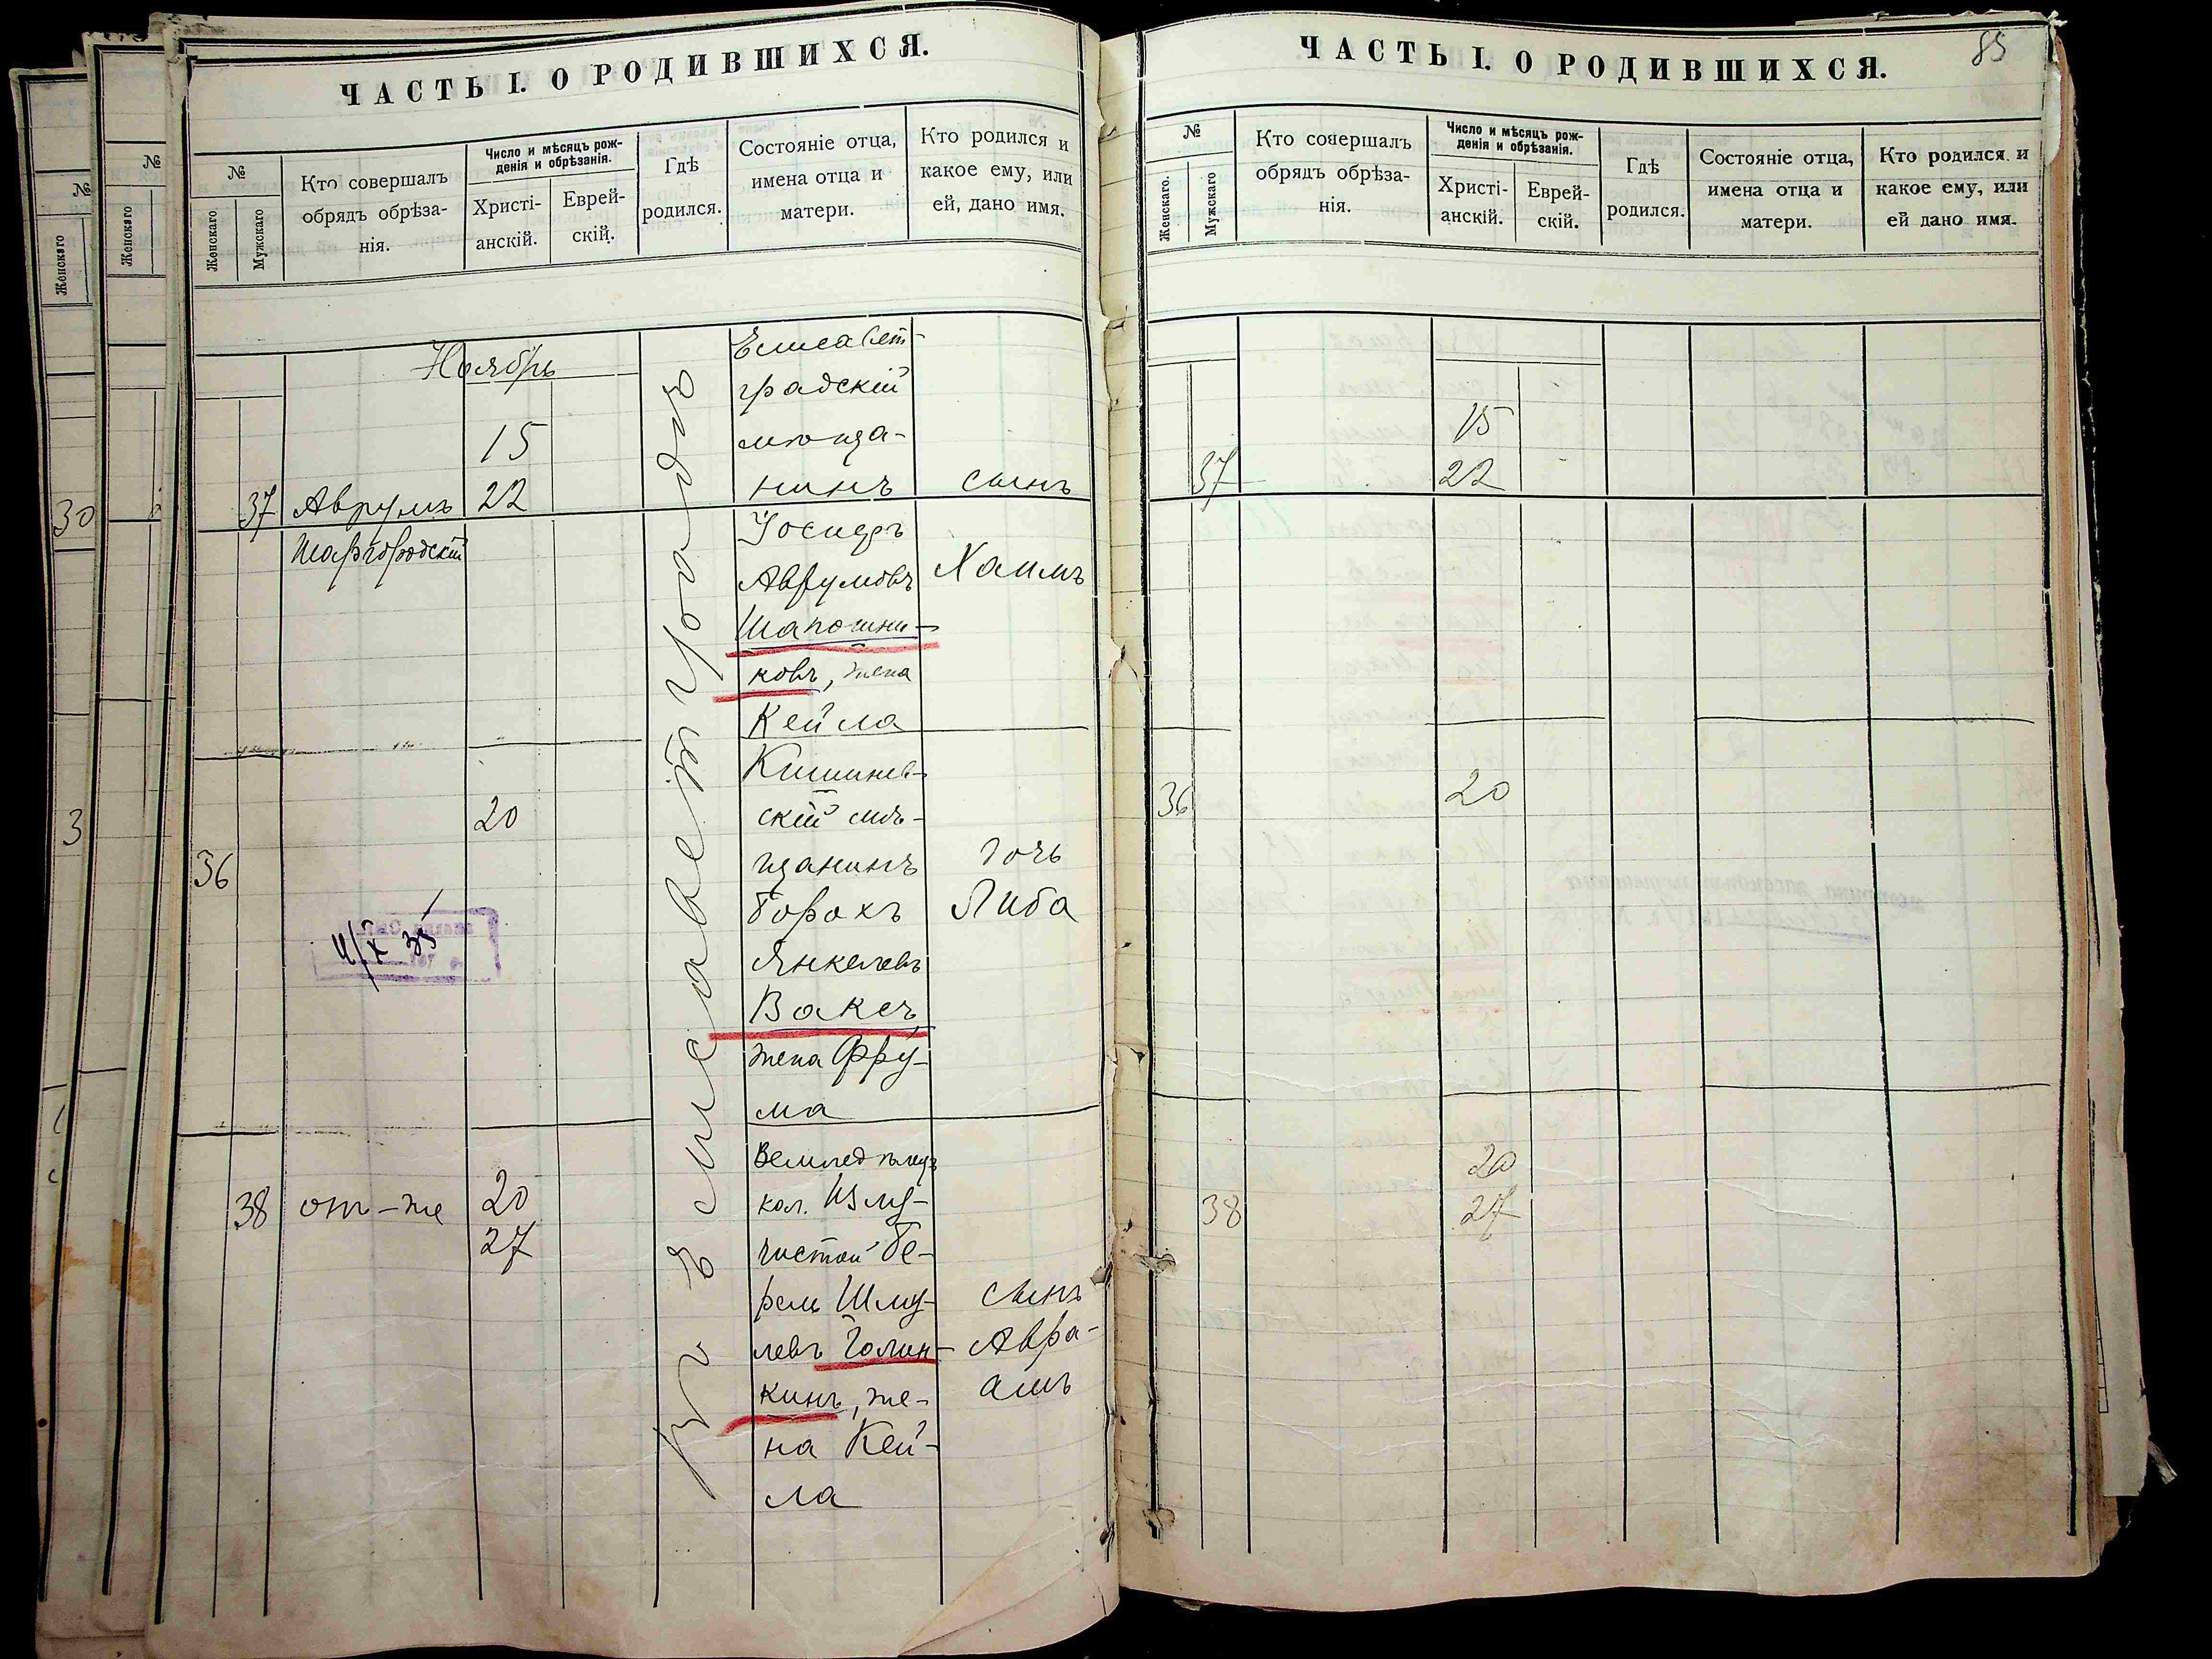 ЧАСТЬ I. О РОДИВШИХСЯ.
№
Женскаго
Мужскаго
Кто совершалъ
обрядъ обрѣза-
нія.
Число и мѣсяцъ рож-
денія и обрѣзанія.
Христі-
анскій.
Еврей-
скій.
Гдѣ
родился.
Состояніе отца,
имена отца и
матери.
Кто родился и
какое ему, или
ей, дано имя.
Ноябрь
37
Аврумъ
Шаргородскій
15
22
Въ Елисаветградѣ
Елисавет-
градскій
мѣща-
нинъ
Іосифъ
Аврумовъ
Шапошни-
ковъ, жена
Кейла
сынъ
Хаимъ
36
20
Кишинев-
скій мѣ-
щанинъ
Борохъ
Янкелевъ
Ваксъ,
жена Фру-
ма
дочь
Либа
38
от-же
20
27
Землед
кол. Излу-
чистой Бе-
рель Шму-
левъ Голин-
кинъ, же-
на Кей-
ла
сынъ
Авра-
амъ
№
Женскаго
№
Женскаго
30
3
ЧАСТЬ I. О РОДИВШИХСЯ.
85
№
Женскаго.
Мужскаго
Кто совершалъ
обрядъ обрѣза-
нія.
Число и мѣсяцъ рож-
денія и обрѣзанія.
Христі-
анскій.
Еврей-
скій.
Гдѣ
родился.
Состояніе отца,
имена отца и
матери.
Кто родился и
какое ему, или
ей дано имя.
37
15
22
36
20
38
20
27